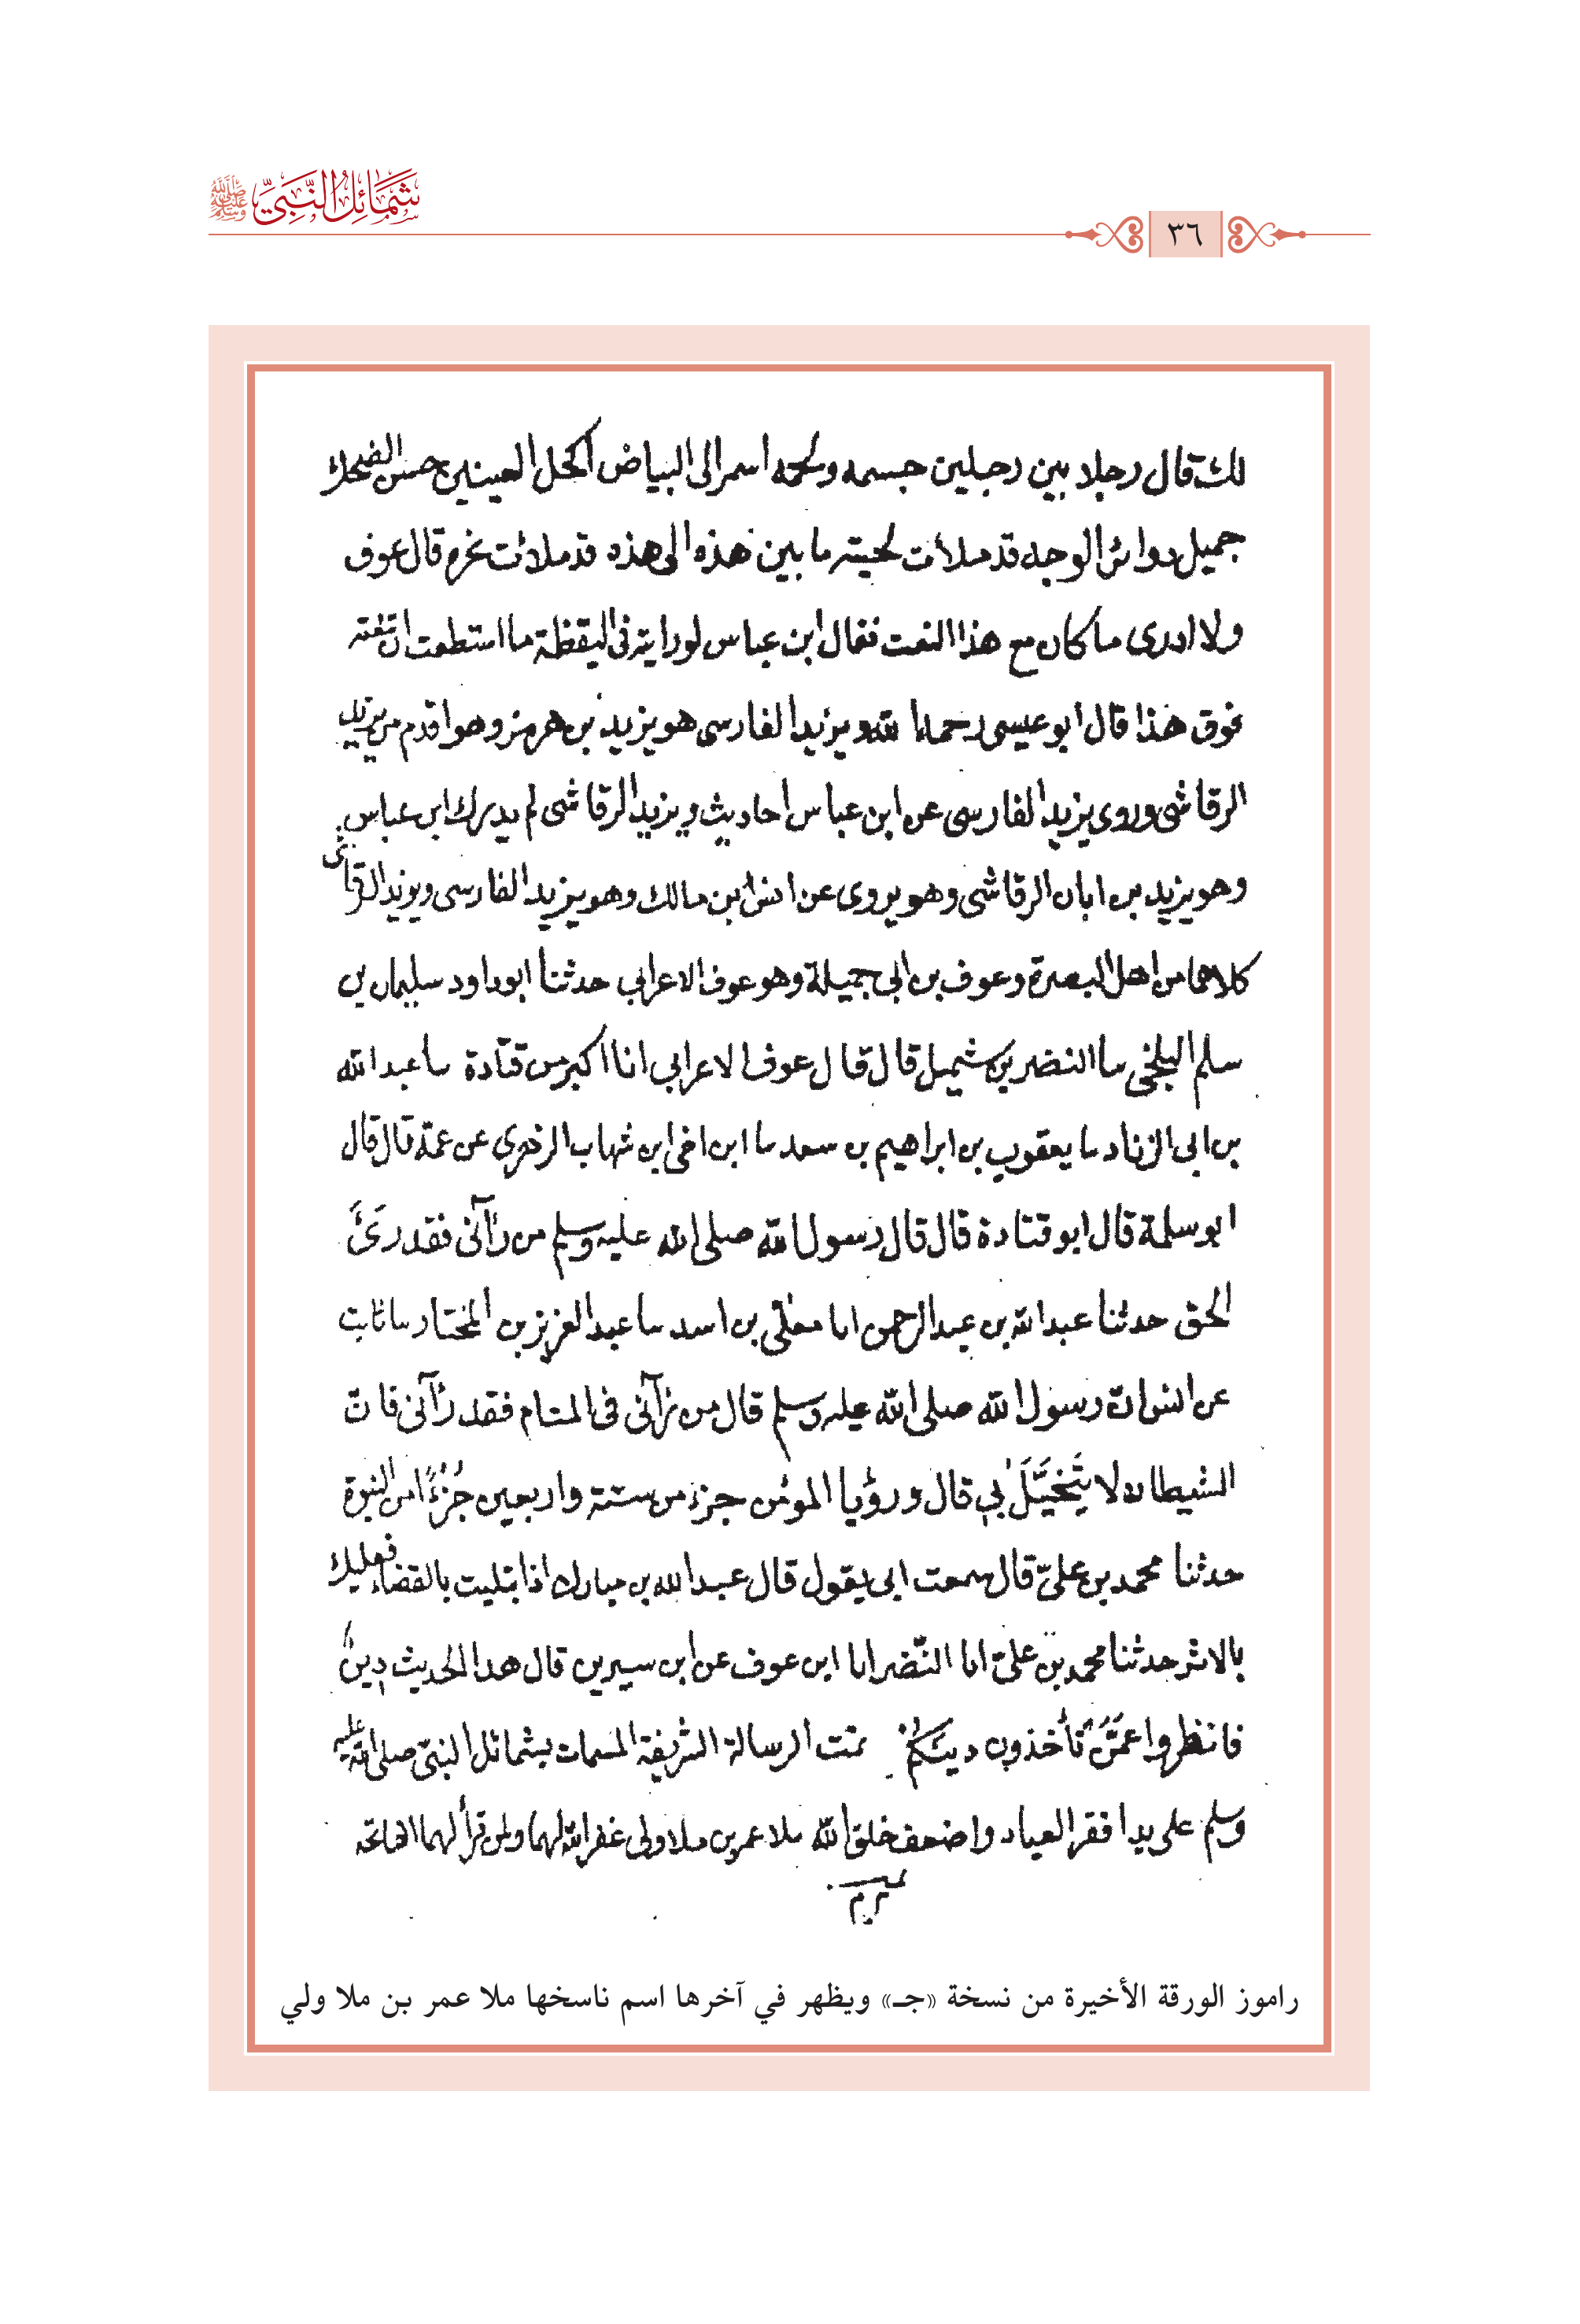 شمائل النبي ﷺ
٣٦
لك قال رجلا بين رجلين جسمه ولحمه اسمر الى البياض اكحل العينين حسن الضحك
جميل دوائر الوجه قد ملأت لحيته ما بين هذه الى هذه قد ملأت نحره قال عوف
ولا ادرى ما كان مع هذا النعت فقال ابن عباس لو رايته فى اليقظة ما استطعت ان تنعته
فوق هذا قال ابو عيسى رحمه الله ويزيد الفارسى هو يزيد بن هرمز وهو اقدم من يزيد
الرقاشى وروى يزيد الفارسى عن ابن عباس احاديث ويزيد الرقاشى لم يدرك ابن عباس
وهو يزيد بن ابان الرقاشى وهو يروى عن انس بن مالك وهو يزيد الفارسى ويزيد الرقاشى
كلاهما من اهل البصرة وعوف بن ابى جميلة وهو عوف الاعرابى حدثنا ابو داود سليمان بن
سلم البلخى سا النضر بن شميل قال قال عوف الاعرابى انا اكبر من قتادة سا عبد الله
بن ابى الزناد سا يعقوب بن ابراهيم بن سعد سا ابن اخى ابن شهاب الزهرى عن عمه قال قال
ابو سلمة قال ابو قتادة قال قال رسول الله صلى الله عليه وسلم من رآنى فقد رَئَ
الحق حدثنا عبد الله بن عبد الرحمن انا معلى بن اسد سا عبد العزيز بن المختار سا ثابت
عن انس ان رسول الله صلى الله عليه وسلم قال من رآنى فى المنام فقد رآنى فان
الشيطان لا يَتَخَيَّلُ بى قال ورؤيا المومن جزء من ستة واربعين جُزْءًا من النبوة
حدثنا محمد بن علىّ قال سمعت ابى يقول قال عبد الله بن مبارك اذا ابتليت بالقضاء فعليك
بالاثر حدثنا محمد بن علىّ انا النّضر انا ابن عوف عن ابن سيرين قال هذا الحديث دين
فانظروا عَمَّنْ تأخذون دينكم تمت الرسالة الشريفة المسمات بشمائل النبىّ صلى الله عليه
وسلم على يد افقر العباد واضعف خلق الله ملا عمر بن ملا ولى غفر الله لهما ولمن قرأ لهما الفاتحة
راموز الورقة الأخيرة من نسخة «جـ» ويظهر في آخرها اسم ناسخها ملا عمر بن ملا ولي